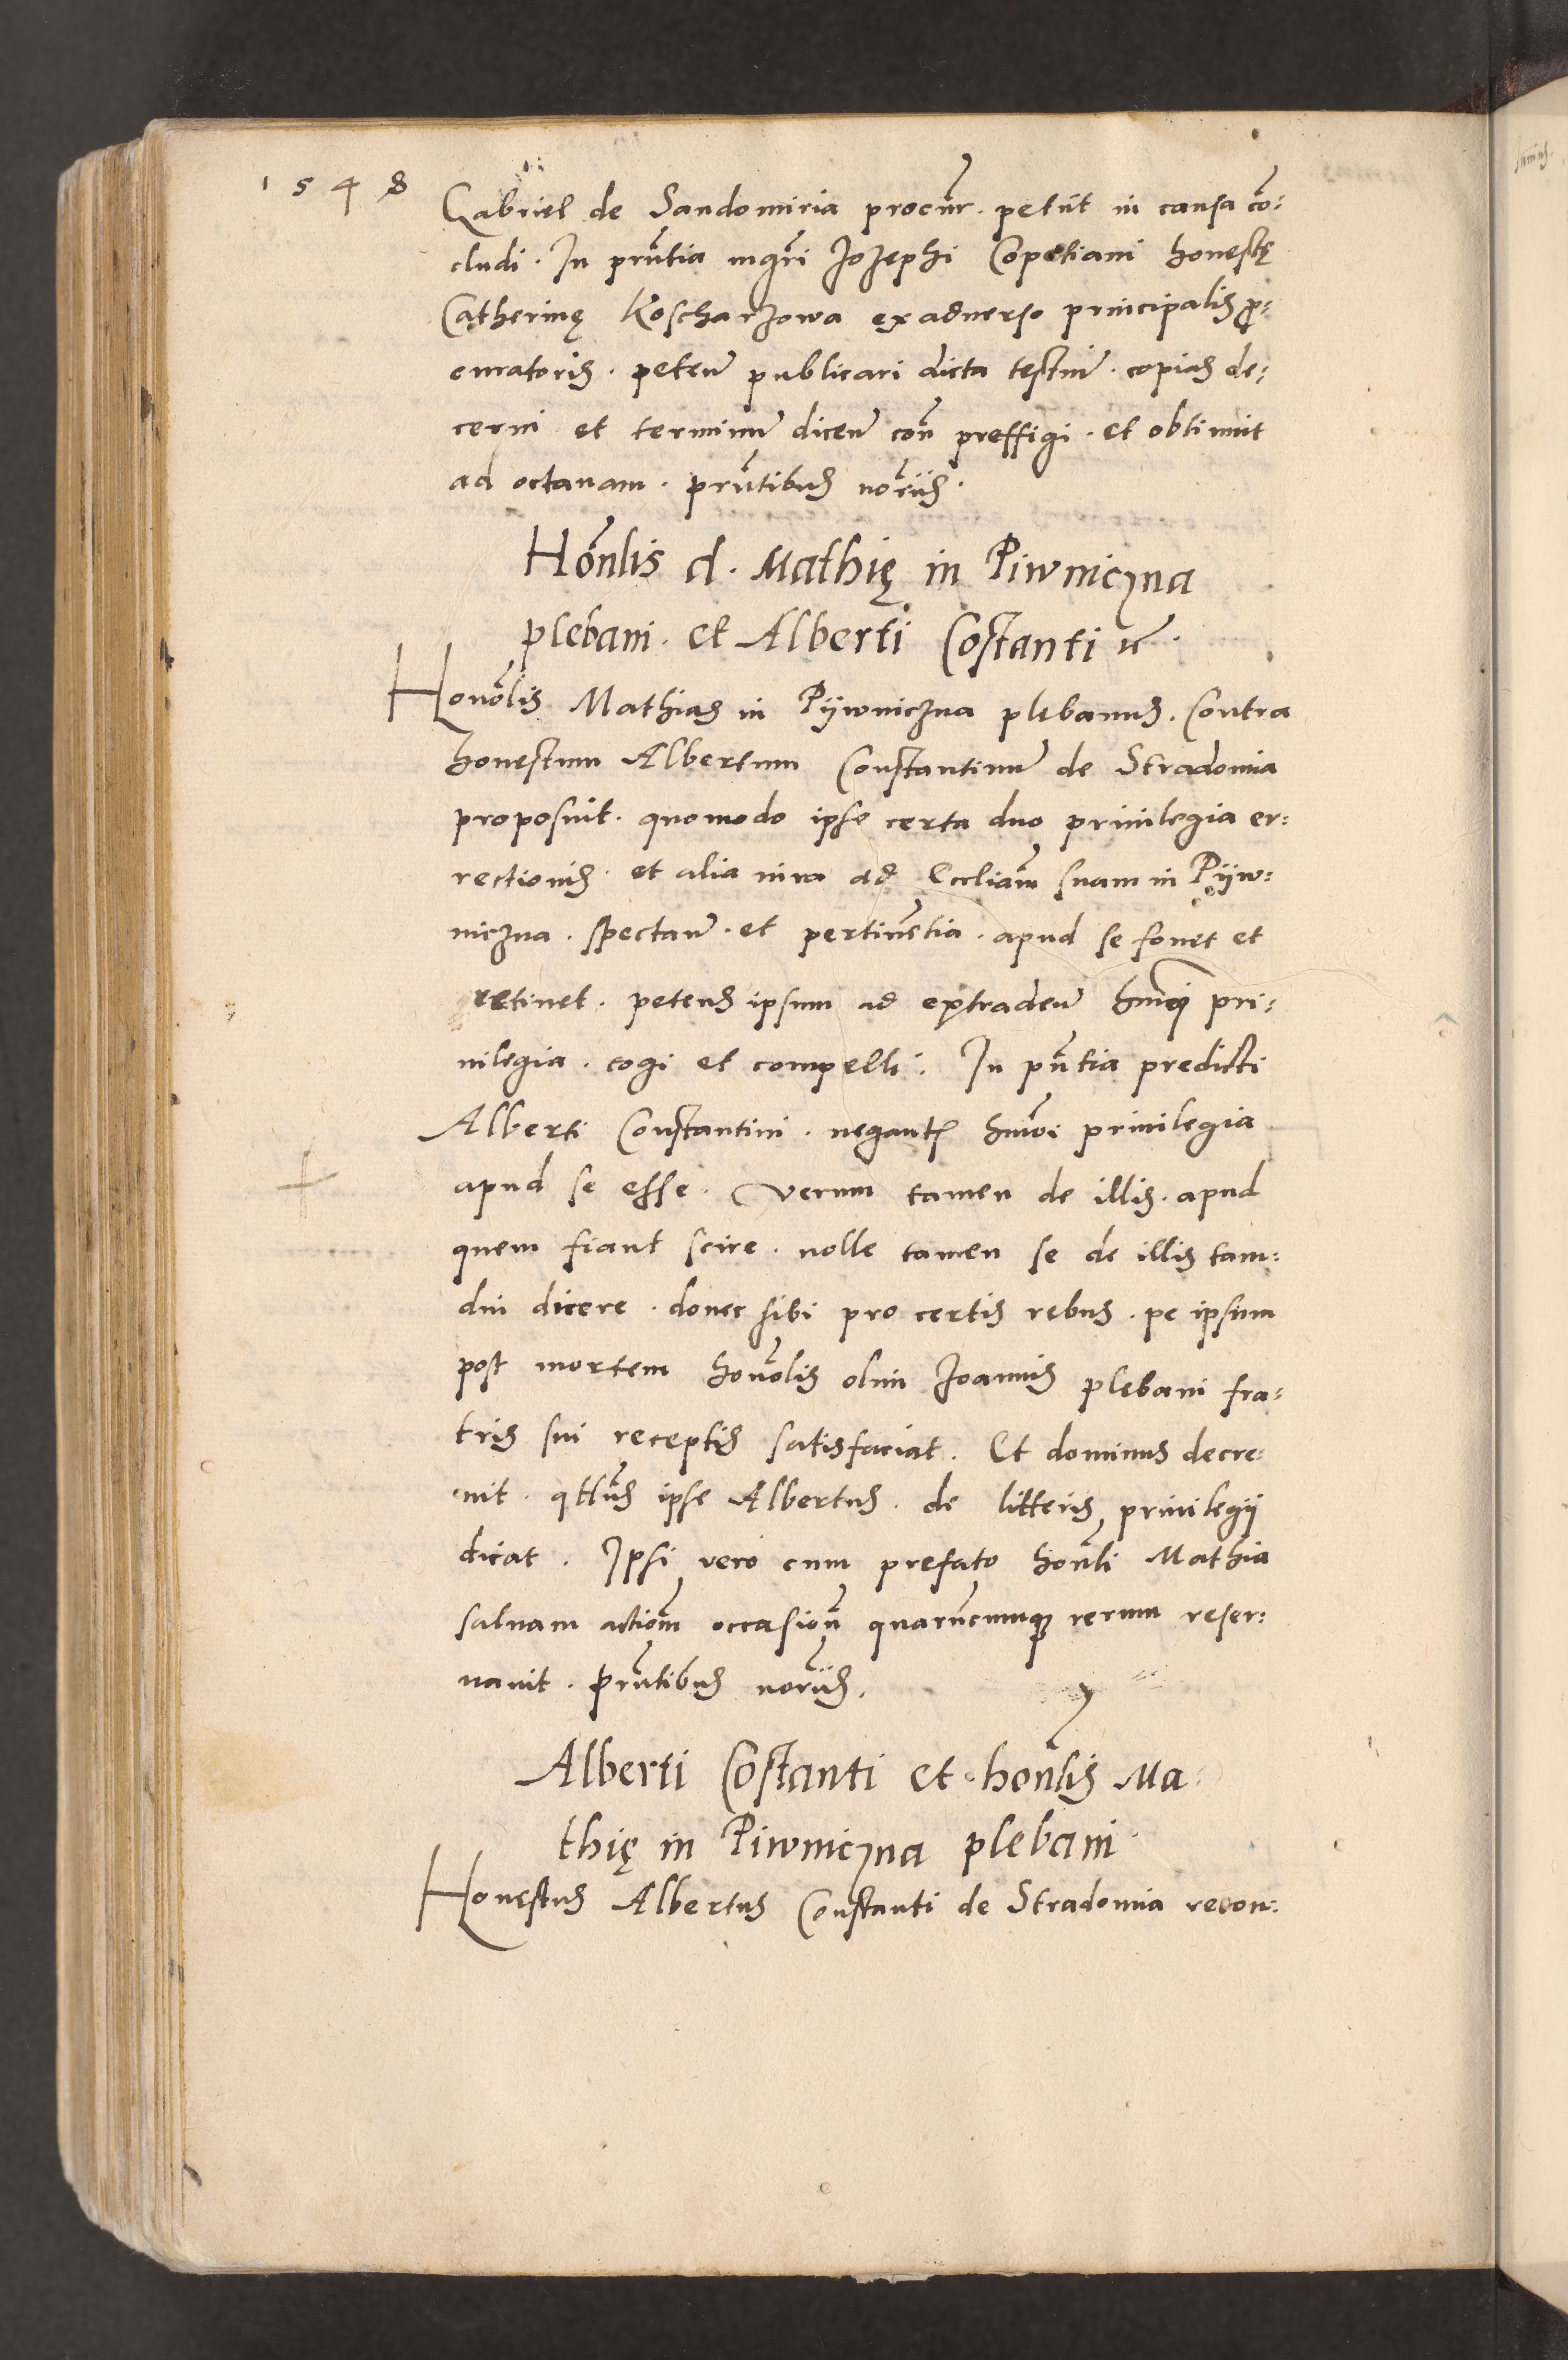 1548
Gabriel de Sandomiria procur̄. petiit in causa cō:
cludi. In pn̄tia mgr̄i Jozephi Copetiani honestę
Catherinę Koscharzowa ex adverso principalis pro:
curatoris. peteñ publicari dicta testiū. copias de:
cerni et terminū dicen̄ con̄ preffigi. et obtinuit
ad octavam. prn̄tibus nōriis.
Honlis d. Mathię in Piwniczna
plebani. et Alberti Costanti
Honōlis Mathias in Pijwniczna plebanus. Contra
honestum Albertum Constantinū de Stradomia
proposuit. quomodo ipse certa duo privilegia er:
rectionis. et alia iura ad Eccliam̄ suam in Pijw:
niczna. spectan̄. et pertinētia. apud se fovet et
retinet. petens ipsum ad extraden̄ hmōi pri:
vilegia. cogi et compelli. In pn̄tia predicti
Alberti Constantini. negantis hmōi privilegia
apud se esse. verum tamen de illis. apud
quem fiant scire. nolle tamen se de illis tam:
diu dicere. donec sibi pro certis rebus. per ipsum
post mortem honōlis olim Joannis plebani fra:
tris sui receptis satisfaciat. Et dominus decre:
vit. qt̄nus ipse Albertus. de litteris privilegii
dicat. Ipsi vero cum prefato honli Mathia
salvam actiōm occasion̄ quarūcumque rerum reser:
vavit. Prn̄tibus noriis.
Alberti Costanti et honlis Ma:
thię in Piwniczna plebani
Honestus Albertus Constanti de Stradomia recon: